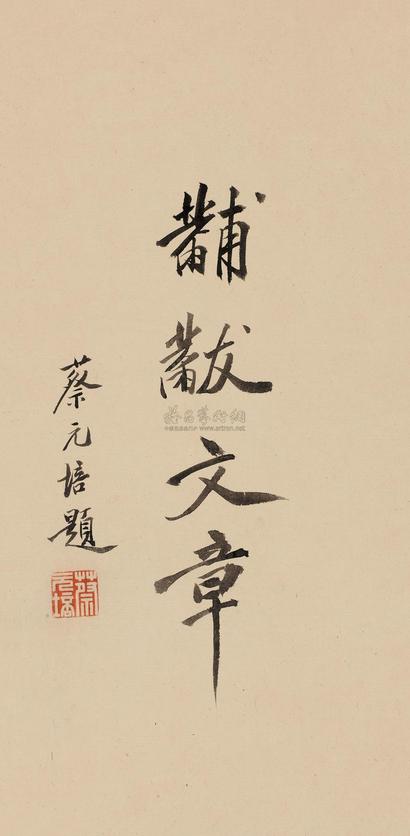 黼黻文章
蔡元培題
蔡元培
www.artron.net